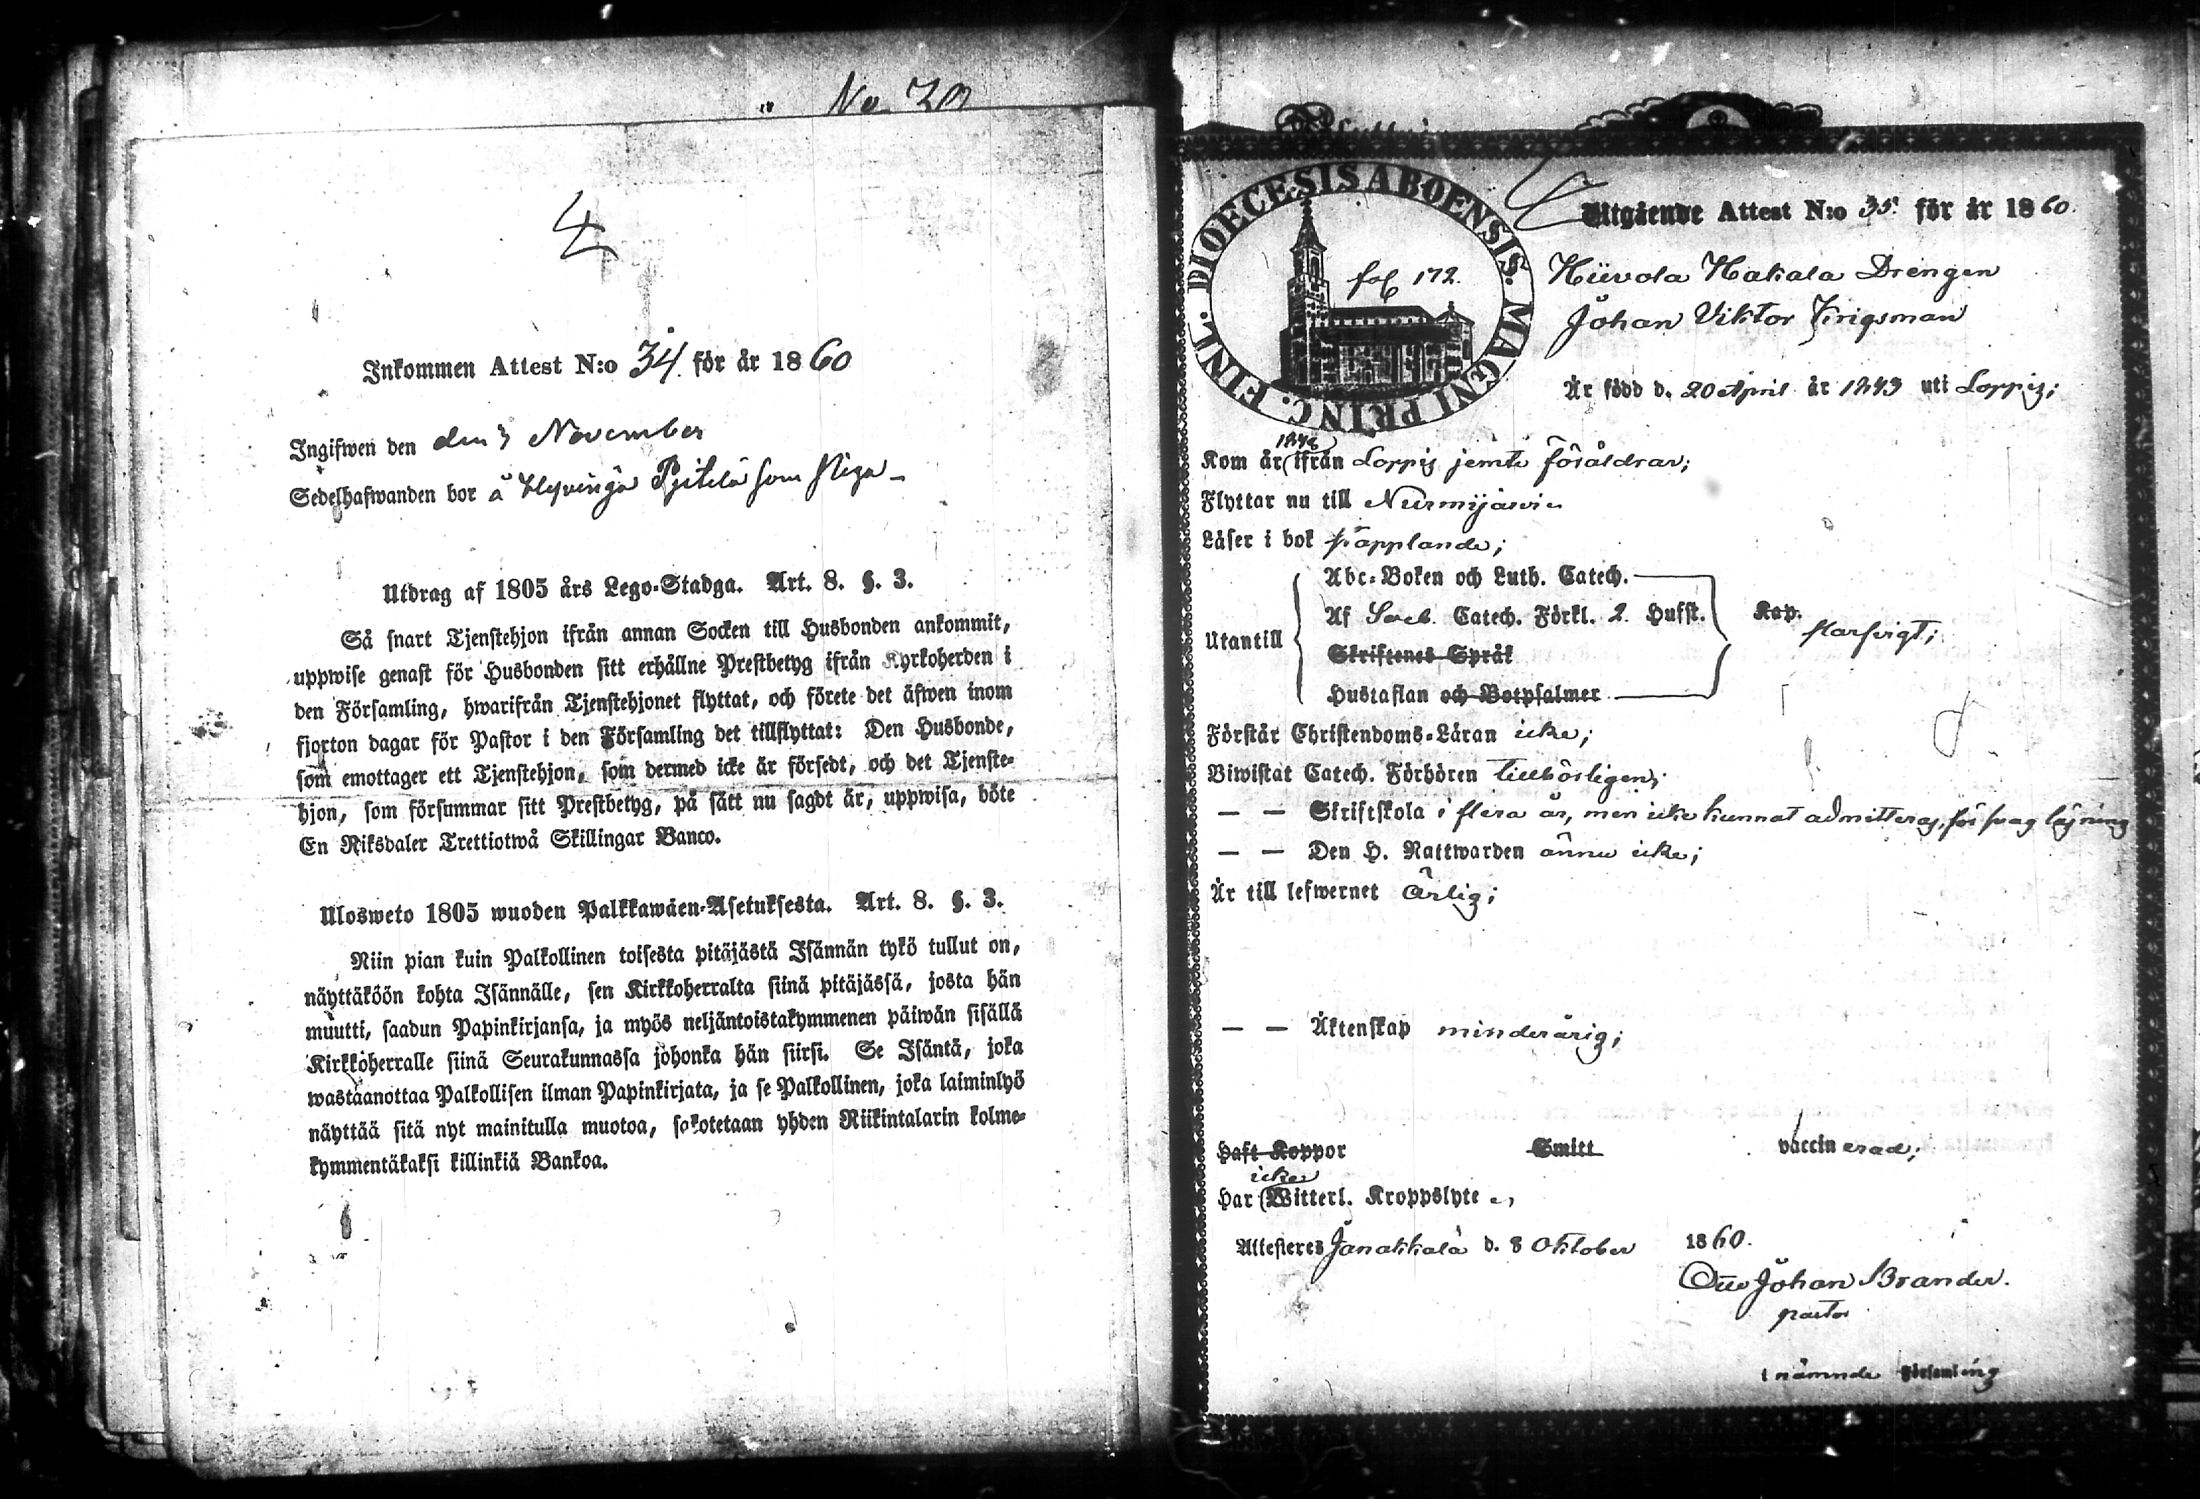 No 30
4
Inkommen Attest N:o 34. för år 1860
Ingifwen den den 3 November
Sedelhafwanden bor å Hyvingä som piga
Utdrag af 1805 års Lego-Stadga. Art. 8. §. 3.
Så snart Tjenstehjon ifrån annan Socken till Husbonden ankommit,
uppwise genast för Husbonden sitt erhållne Prestbetyg ifrån Kyrkoherden i
den Församling, hwarifrån Tjenstehjonet flyttat, och förete det äfwen inom
fjorton dagar för Pastor i den Församling det tillflyttat: Den Husbonde,
som emottager ett Tjenstehjon, som dermed icke är försedt, och det Tjenste-
hjon, som försummar sitt Prestbetyg, på sätt nu sagdt är, uppwisa, böte
En Riksdaler Trettiotwå Skillingar Banco.
Ulosweto 1805 wuoden Palkkawäen-Asetuksesta. Art. 8. §. 3.
Niin pian kuin Palkollinen toisesta pitäjästä Isännän tykö tullut on,
näyttäköön kohta Isännälle, sen Kirkkoherralta siinä pitäjässä, josta hän
muutti, saadun Papinkirjansa, ja myös neljäntoistakymmenen päiwän sisällä
Kirkkoherralle siinä Seurakunnassa johonka hän siirsi. Se Isäntä, joka
wastaanottaa Palkollisen ilman Papinkirjata, ja se Palkollinen, joka laiminlyö
näyttää sitä nyt mainitulla muotoa, sakotetaan yhden Riikintalarin kolme-
kymmentäkaksi killinkiä Bankoa.
DIOECESIS ABOENSIS. MAGNI PRINC. FINL.
fol 172.
Utgående Attest N:o 35. för år 1860.
Hiivola Hakala Drengen
Johan Viktor Krigsman
Är född d. 20 April år 1843 uti Loppis;
Kom år ifrån Loppis jemte föräldrar;
Flyttar nu till Nurmijärvi
Läser i bok
Abc-Boken och Luth. Catech.
Af Sveb. Catech. Förkl. 2. Hufst. Kap.
Utantill
Skriftenes Språk
Hustaflan och Botpsalmer
Förstår Christendoms-Läran icke;
Biwistat Catech. Förhören tillbörligen;
— — Skriftskola i flera år, men icke kunnat admitteras, för svag läsning
— — Den H. Nattwarden ännu icke;
Är till lefwernet ärlig;
— — Äktenskap minderårig;
Haft Koppor Smitt vaccinerad;
icke
Har Witterl. Kroppslyte
Attesteres Janakkala d. 8 Oktober 1860.
Otto Johan Brander.
pastor
i nämnde Församling